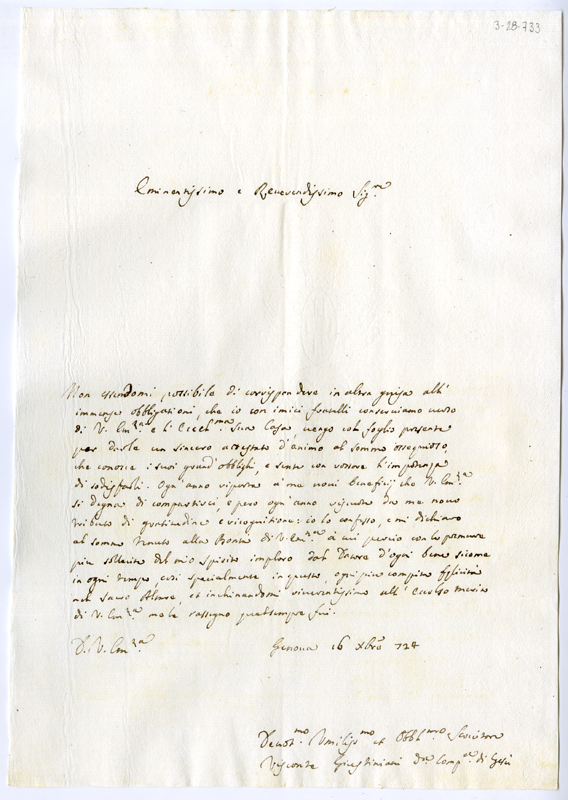 3-28-733
Eminentissimo e Reverendissimo Sig.re
Non essendomi possibile di corrispondere in altra guisa all'
immense obbligationi, che io con i miei fratelli conserviamo verso
di V. Em.za e l' Ecc.ma Sua Casa, vengo col foglio presente
per darle un sincero attestato d'animo al sommo ossequioso,
che conosce i suoi grand'obblighi, e sente con rossore l'impotenza
di sodisfarli. Ogni anno viporta a me novi beneficij che V. Em.za
si degna di compartirci, e però ogni anno da me novo
tributo di gratitudine e ricognitione: io lo confesso, e mi dichiaro
al sommo tenuto alla Bontà di V. Em.za à cui perciò con le premure
più sollecite del mio spirito imploro dal Datore d'ogni bene sicome
in ogni tempo, così specialmente in questo, ogni più compita felicità
nel Sacro Natale et inchinandomi riverentissimo all'
di V. Em.za me le rassegno qual sempre fui.
D. V. Em.za
Genova 16 Xbre 728
Devot.mo Umiliss.mo et Obbl.mo Servitore
Visconte Giustiniani Comp.a di Gesù